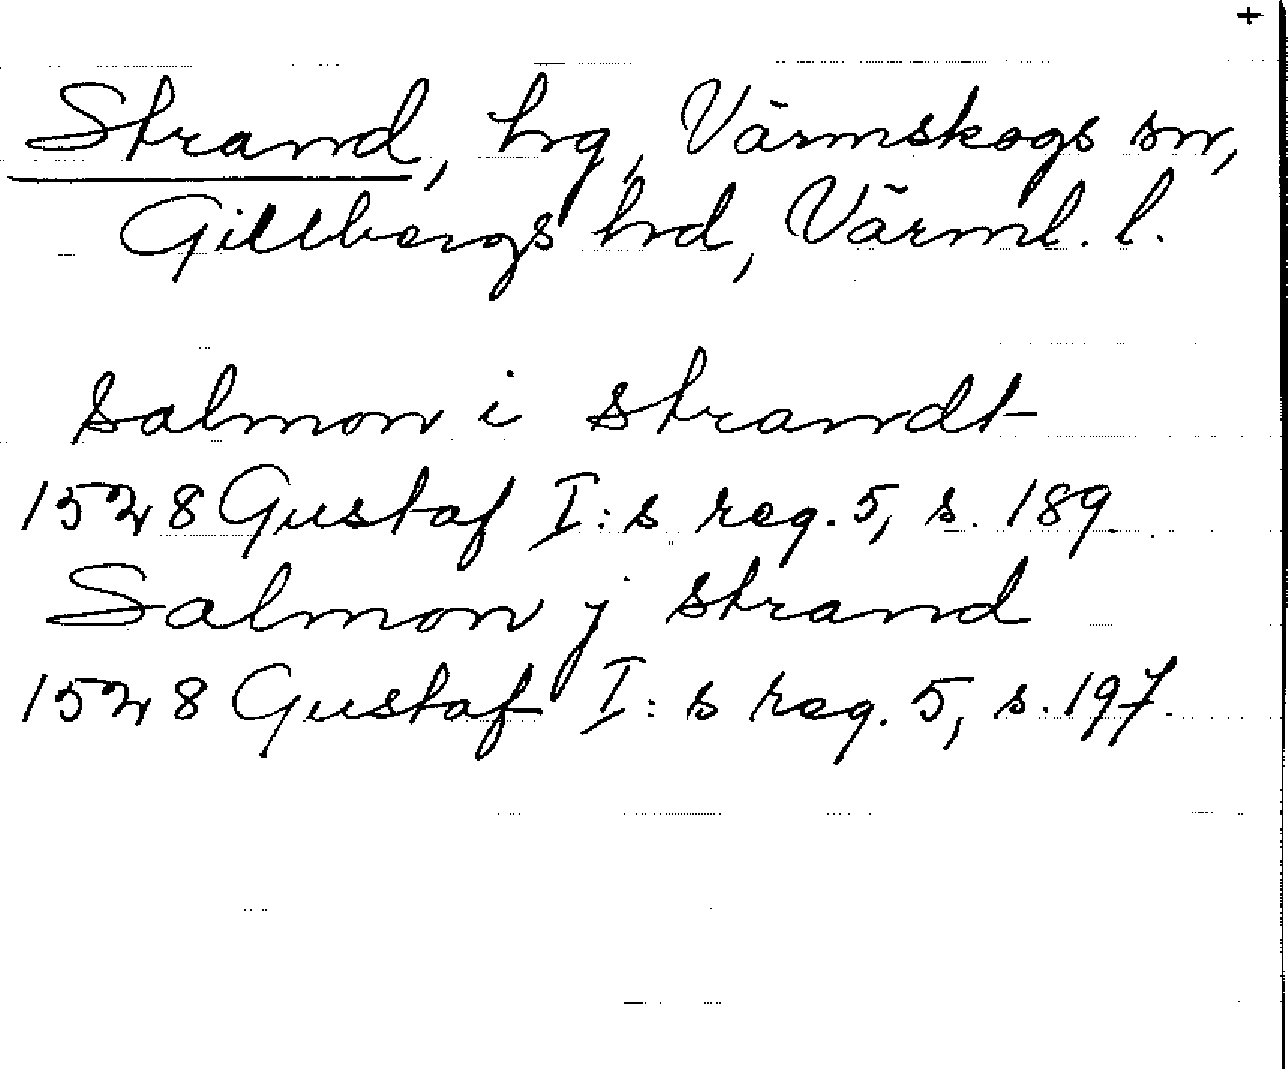 +
Strand, hg, Värmskogs sn,
Gillbergs hd, Värml. l.
Salmon i strandt
1528 Gustaf I:s reg. 5, s. 189.
Salmon j strand
1528 Gustaf I:s reg. 5, s. 197.